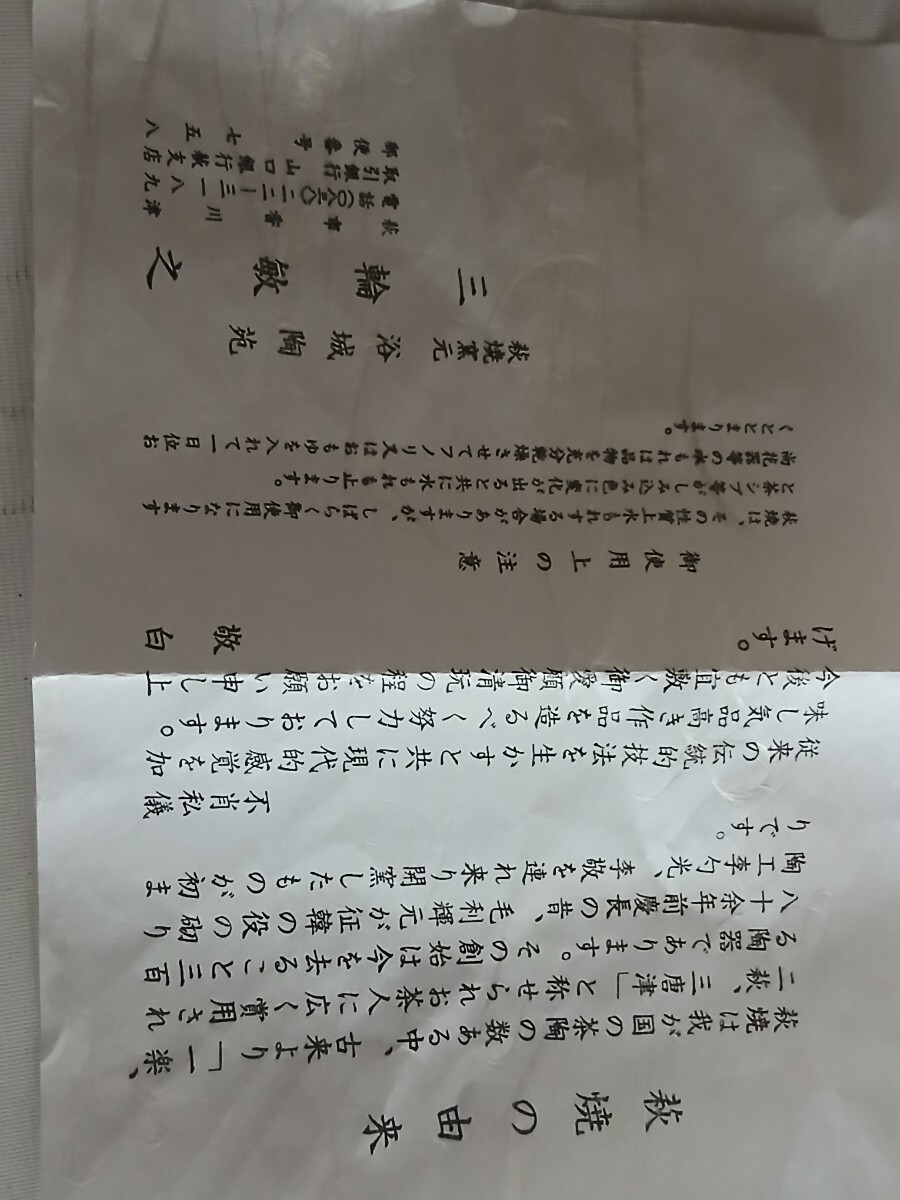 萩焼の由来
萩焼は我が国の茶陶の数ある中、古来より「一楽、
二萩、三唐津」と称せられ茶人に広く賞用され
る陶器であります。その創始は今を去ること三百
八十余年前慶長の昔、毛利輝元が征韓の役の砌り
陶工李勺光、李敬を連れ来り開窯したものが初ま
りです。
不肖私儀
従来の伝統的技法を生かすと共に現代的感覚を加
味し気品高き作品を造るべく努力しております。
今後とも宜敷く御愛顧御清玩の程をお願い申し上
げます。
敬白
御使用上の注意
萩焼は、その性質上水もれする場合がありますが、しばらく御使用になります
と茶シブ等がしみ込み色に変化が出ると共に水もれも止ります。
尚花器等の水もれは品物を充分乾燥させてフノリ又はおもゆを入れて一日位お
くととまります。
萩焼窯元 浴城陶苑
三輪敏之
萩市香川津
電話 三一八九
取引銀行 山口銀行萩支店
郵便番号 七五八